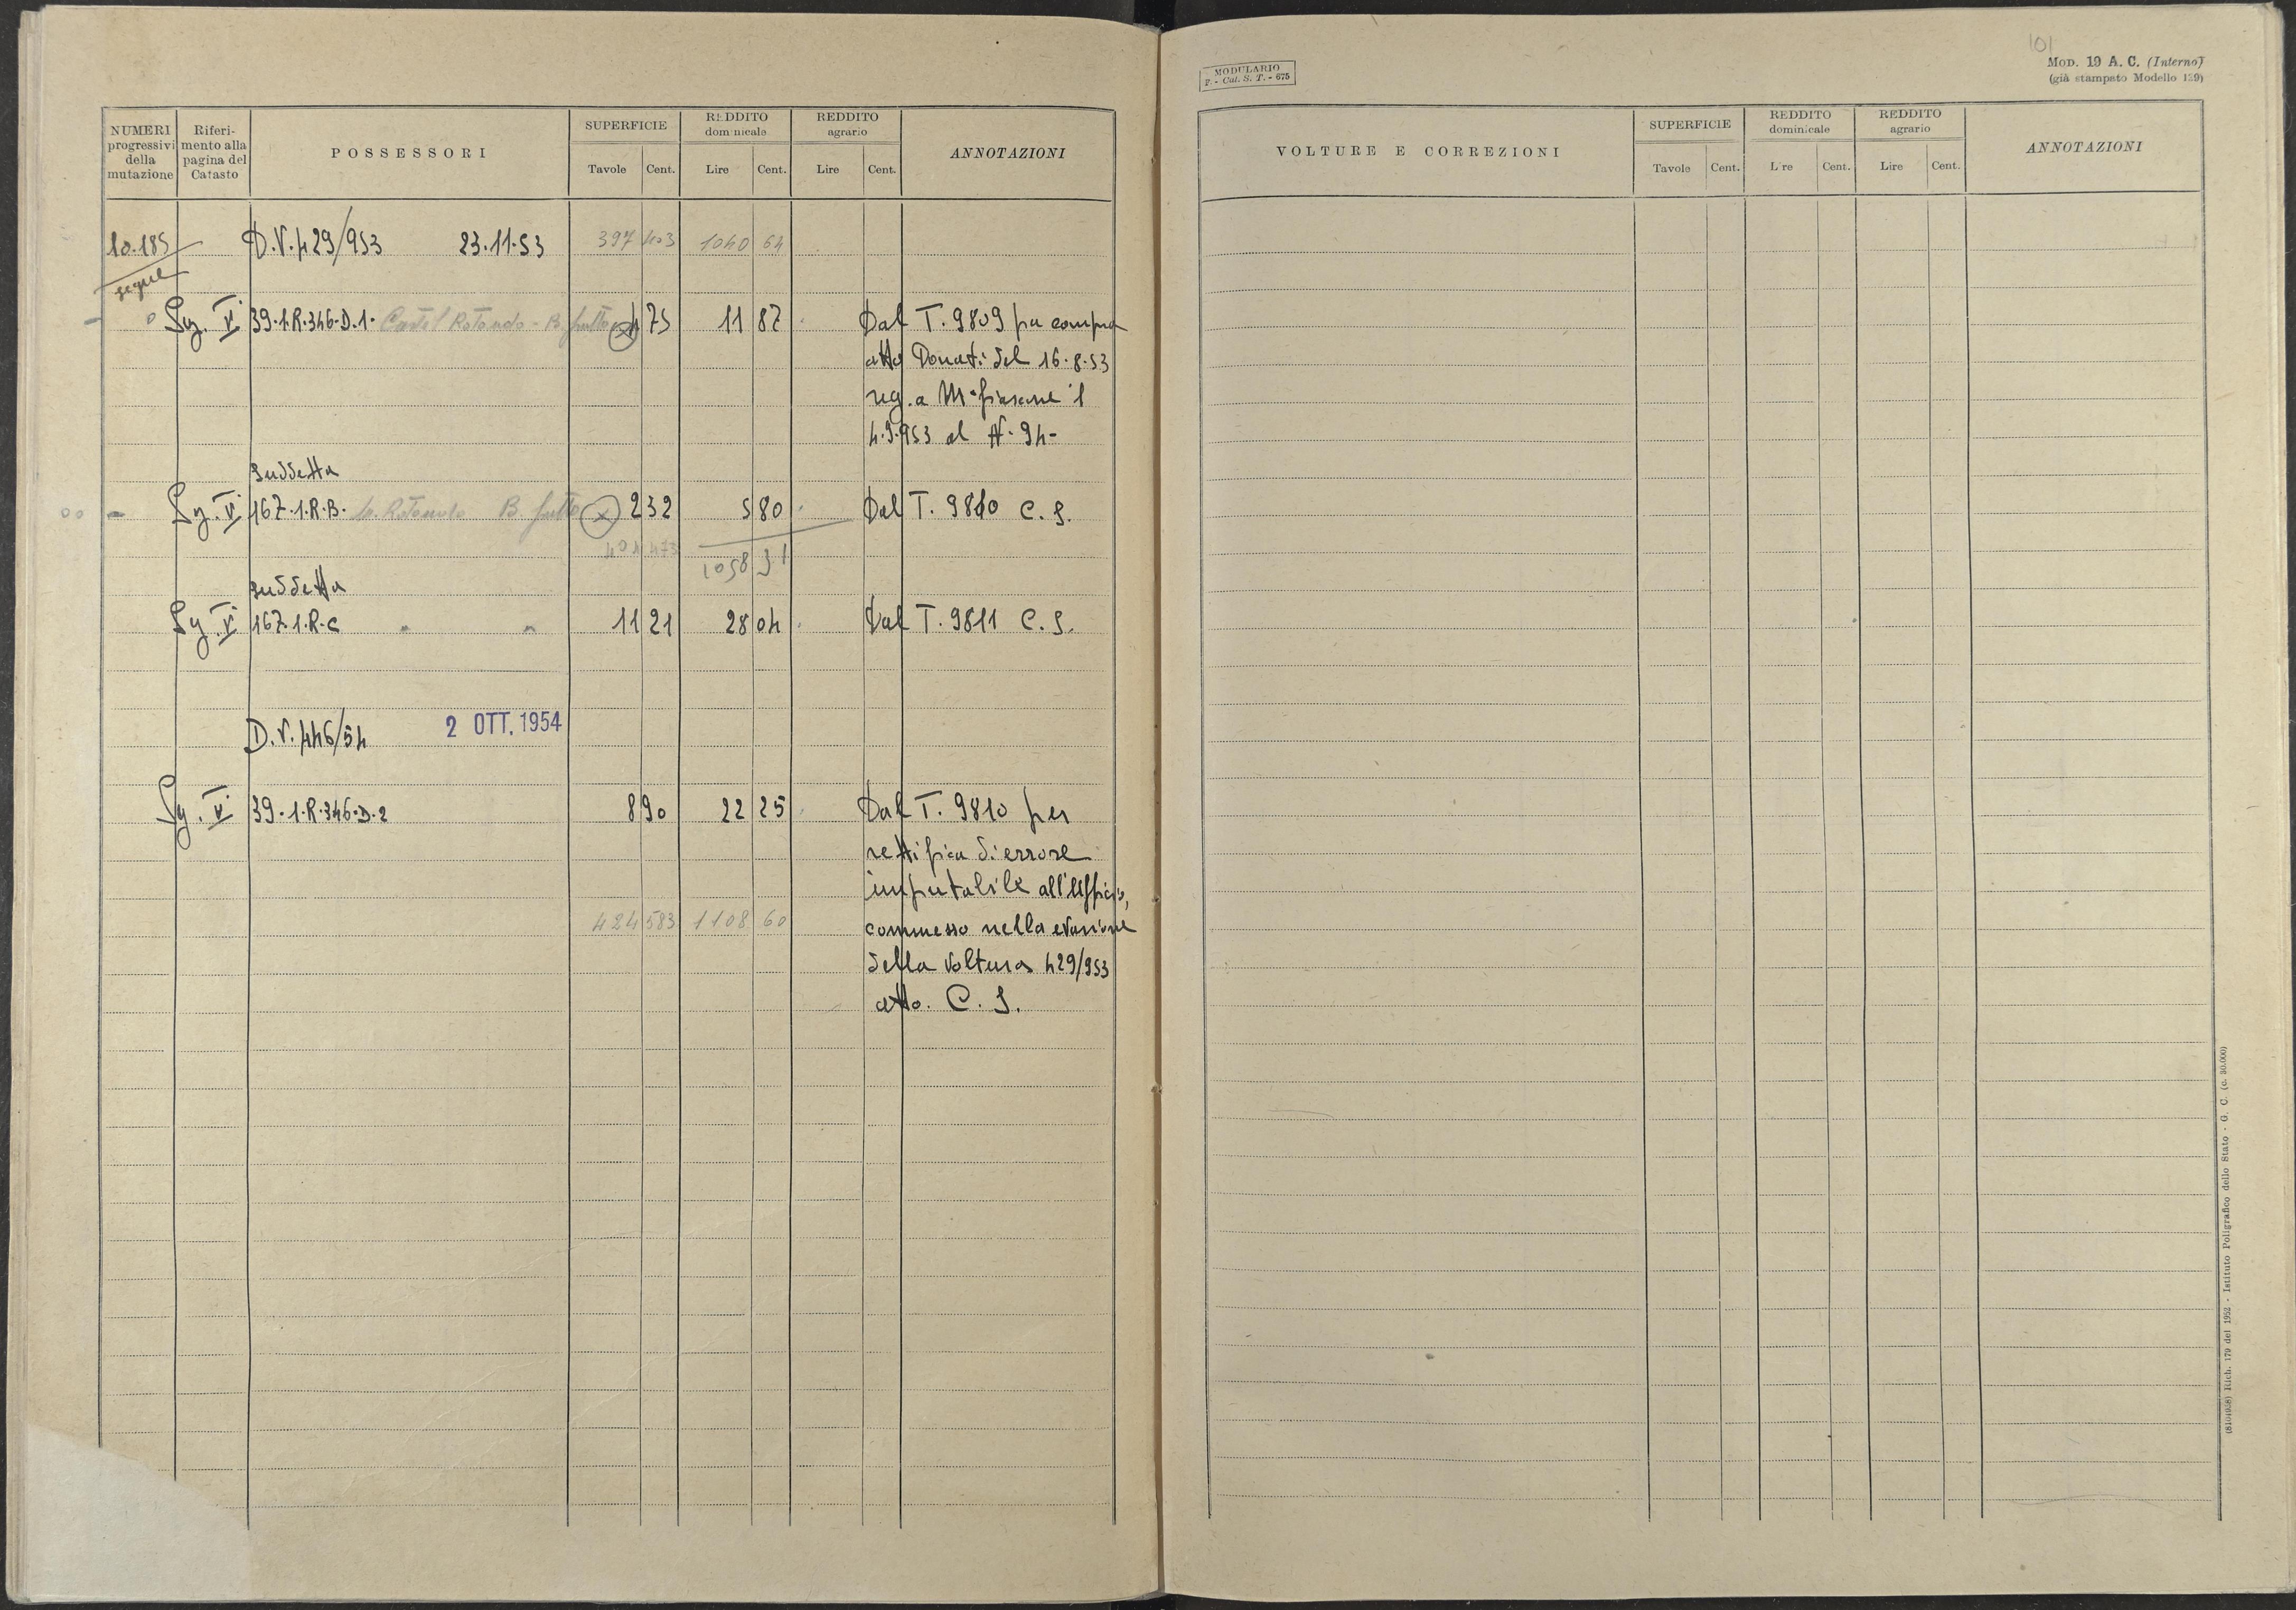 NUMERI progressivi della mutazione | Riferimento alla pagina del Catasto | POSSESSORI | SUPERFICIE Tavole Cent. | REDDITO dominicale Lire Cent. | REDDITO agrario Lire Cent. | ANNOTAZIONI
10.185 D.V. 429/953 23.11.53 397 403 1040 64
segue
Sez. V 39.1.R.346.D.1. Castel Rotondo - B. fatto 4 75 11 87 Dal T. 9809 per compra
atto Donati del 16.8.53
reg. a M. fiascone il
4.9.953 al N. 94-
Suddetta
Sez. V 167.1.R.B. C. Rotondo B. fatto 2 32 5 80 Dal T. 9810 C.S.
404 473 1058 31
Suddetta
Sez. V 167.1.R.C " " 11 21 28 04 Dal T. 9811 C.S.
D.V. 446/54 2 OTT. 1954
Sez. V 39.1.R.346.D.2 8 90 22 25 Dal T. 9810 per
rettifica di errore
imputabile all'Ufficio,
424 583 1108 60 commesso nella evasione
della Voltura 429/953
atto. C.S.
MODULARIO
F. - Cat. S. T. - 675
101
MOD. 19 A. C. (Interno)
(già stampato Modello 129)
VOLTURE E CORREZIONI | SUPERFICIE Tavole Cent. | REDDITO dominicale Lire Cent. | REDDITO agrario Lire Cent. | ANNOTAZIONI
Rich. 179 del 1952 - Istituto Poligrafico dello Stato - G. C. (c. 30.000)